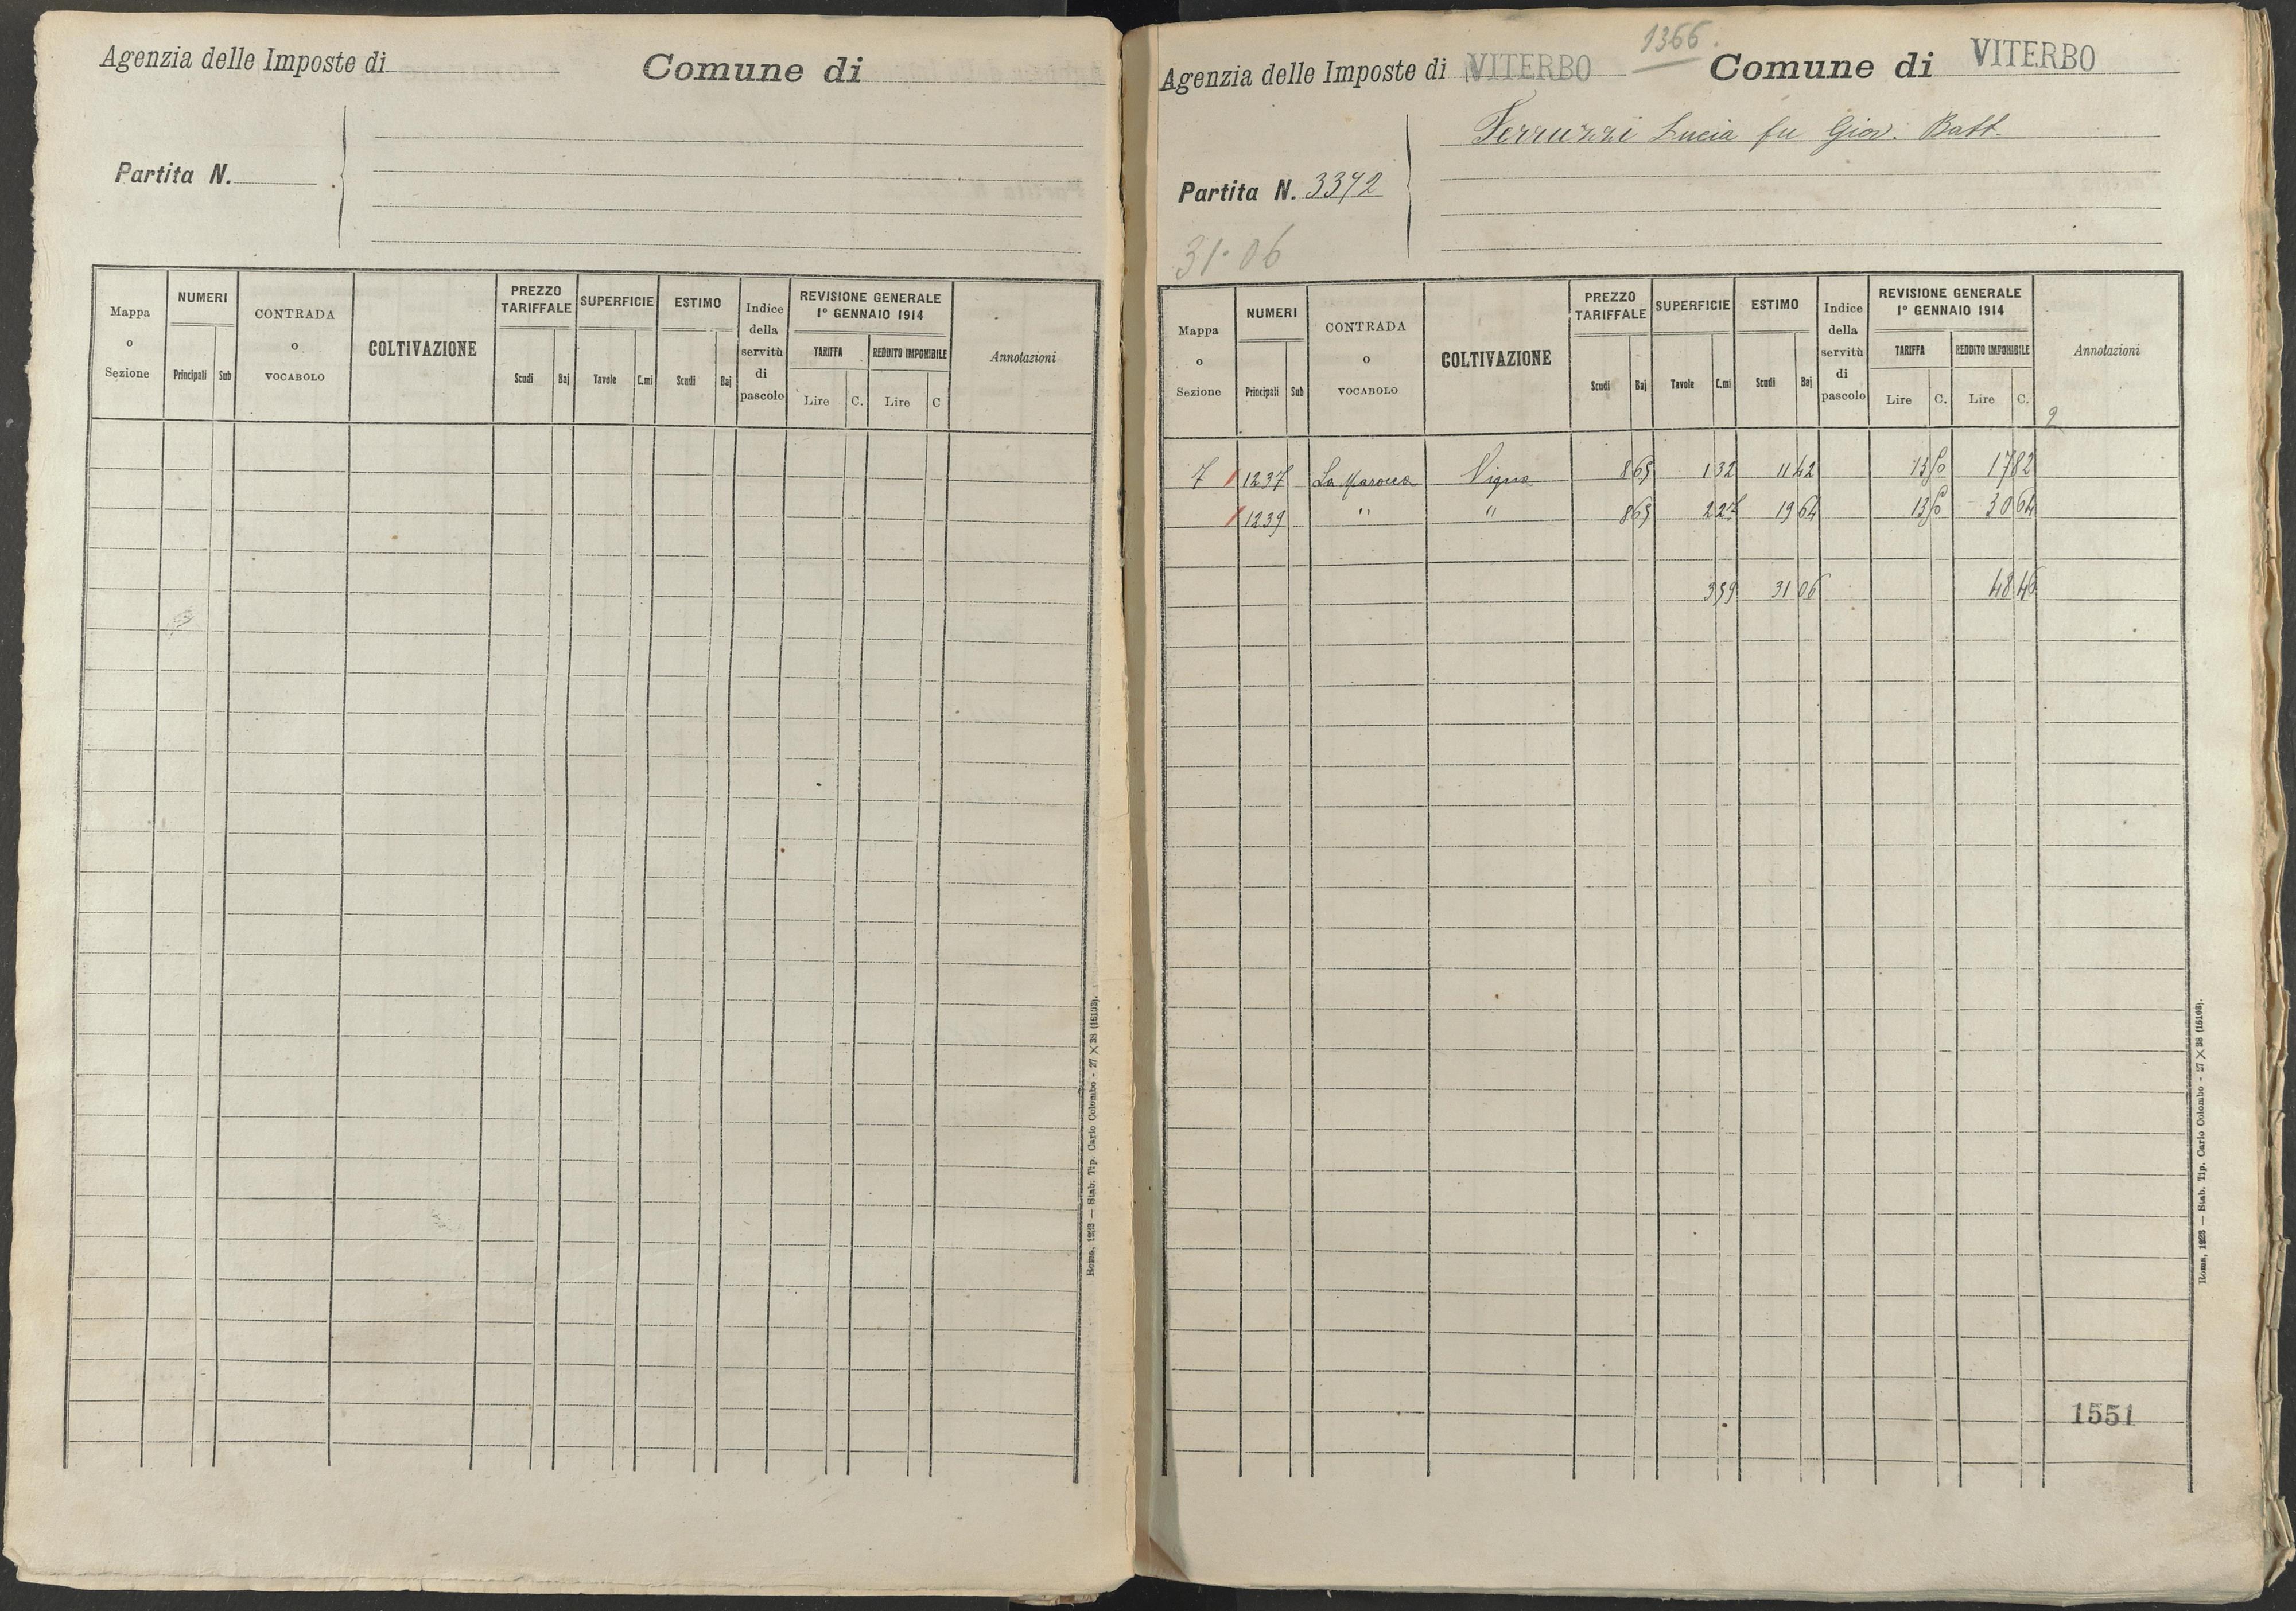 Agenzia delle Imposte di
Comune di
Partita N.
Mappa o Sezione
NUMERI
Principali Sub
CONTRADA o VOCABOLO
COLTIVAZIONE
PREZZO TARIFFALE
Scudi Baj
SUPERFICIE
Tavole C.mi
ESTIMO
Scudi Baj
Indice della servitù di pascolo
REVISIONE GENERALE
1° GENNAIO 1914
TARIFFA REDDITO IMPONIBILE
Lire C. Lire C
Annotazioni
Roma, 1923 — Stab. Tip. Carlo Colombo - 27 X 38 (15103).
1366.
Agenzia delle Imposte di VITERBO
Comune di VITERBO
Ferruzzi Lucia fu Giov. Batt.
Partita N. 3372
31.06
Mappa o Sezione
NUMERI
Principali Sub
CONTRADA o VOCABOLO
COLTIVAZIONE
PREZZO TARIFFALE
Scudi Baj
SUPERFICIE
Tavole C.mi
ESTIMO
Scudi Baj
Indice della servitù di pascolo
REVISIONE GENERALE
1° GENNAIO 1914
TARIFFA REDDITO IMPONIBILE
Lire C. Lire C.
Annotazioni
2
7 1237 La Marocca Vigna 8 65 1 32 11 42 13 50 17 82
1239 " " 8 65 2 27 19 64 13 50 30 64
3 59 31 06 48 46
1551
Roma, 1923 — Stab. Tip. Carlo Colombo - 27 X 38 (15103).